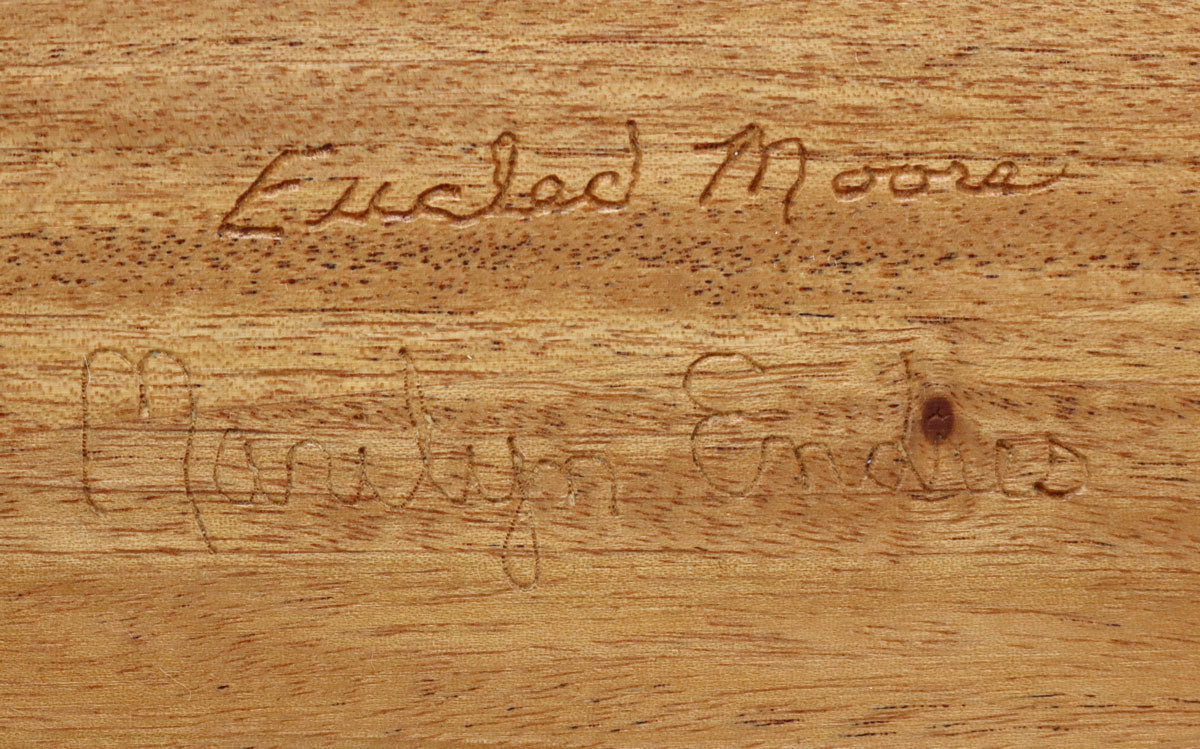 Eucled Moore
Marilyn Endris